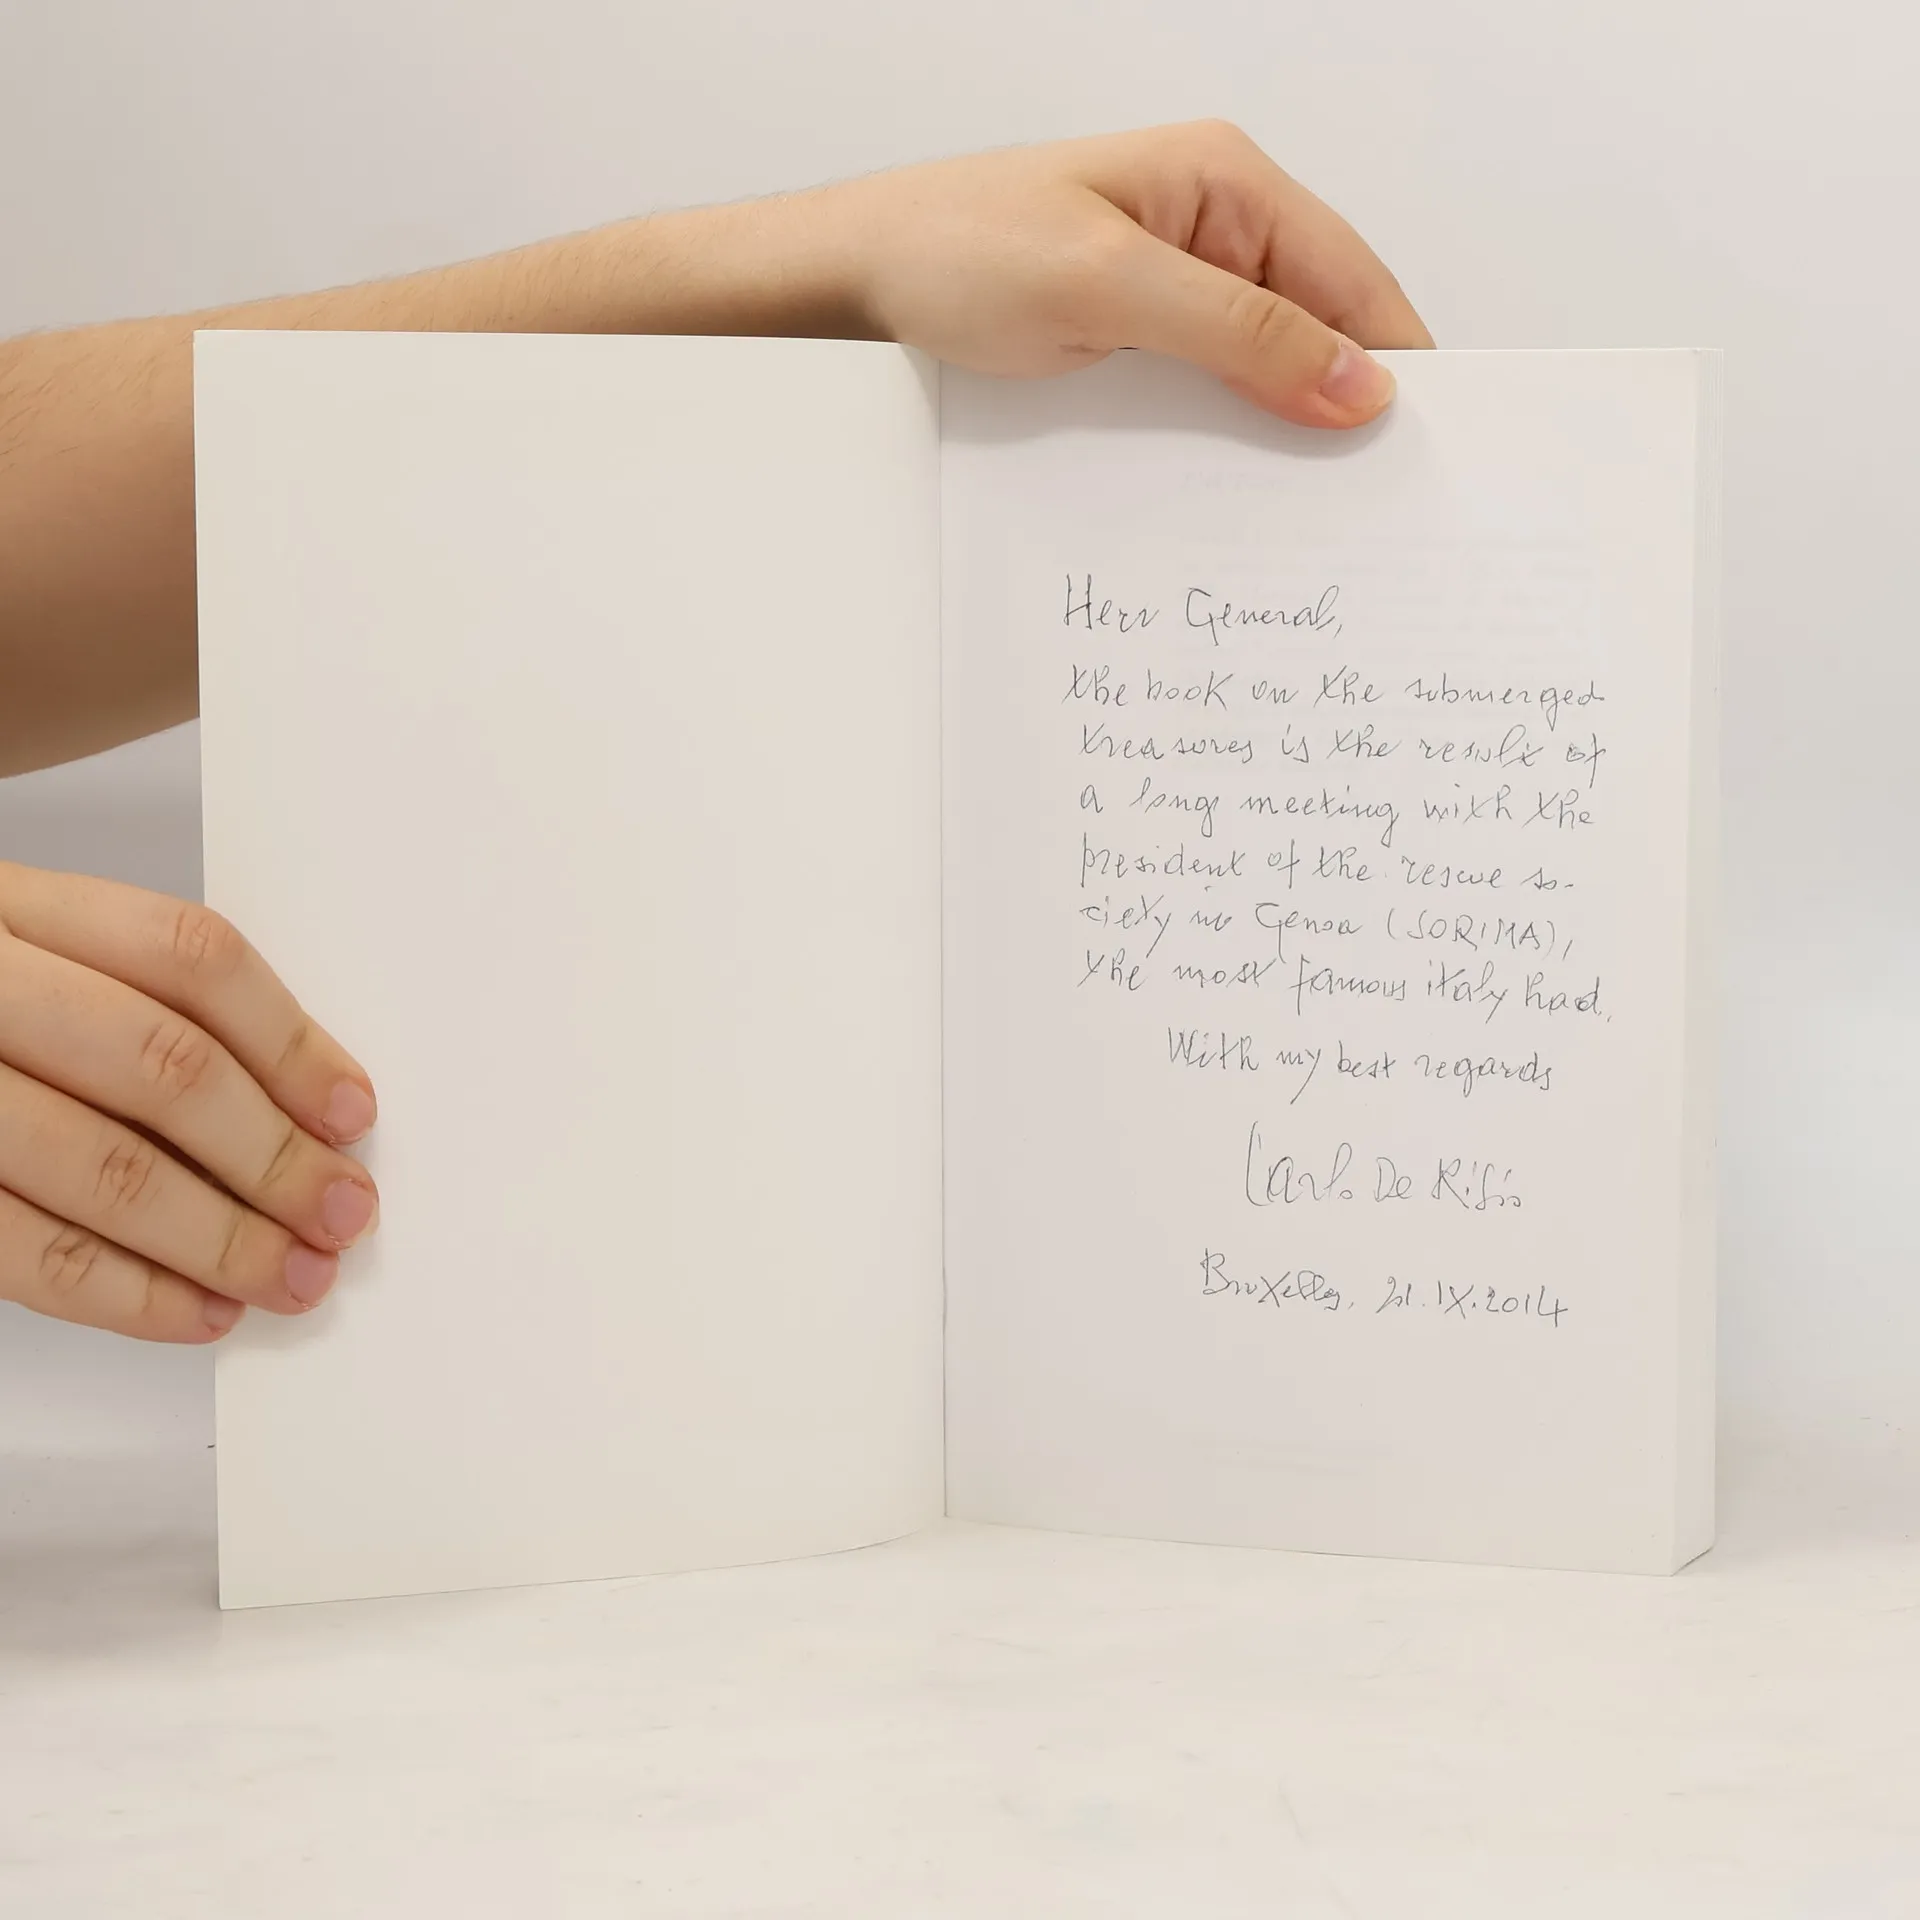 Herr General,
the book on the submerged
treasures is the result of
a long meeting with the
president of the rescue so-
ciety in Genoa (SORIMA),
the most famous italy had.
With my best regards
Carlo De Risio
Bruxelles, 21.IX.2014